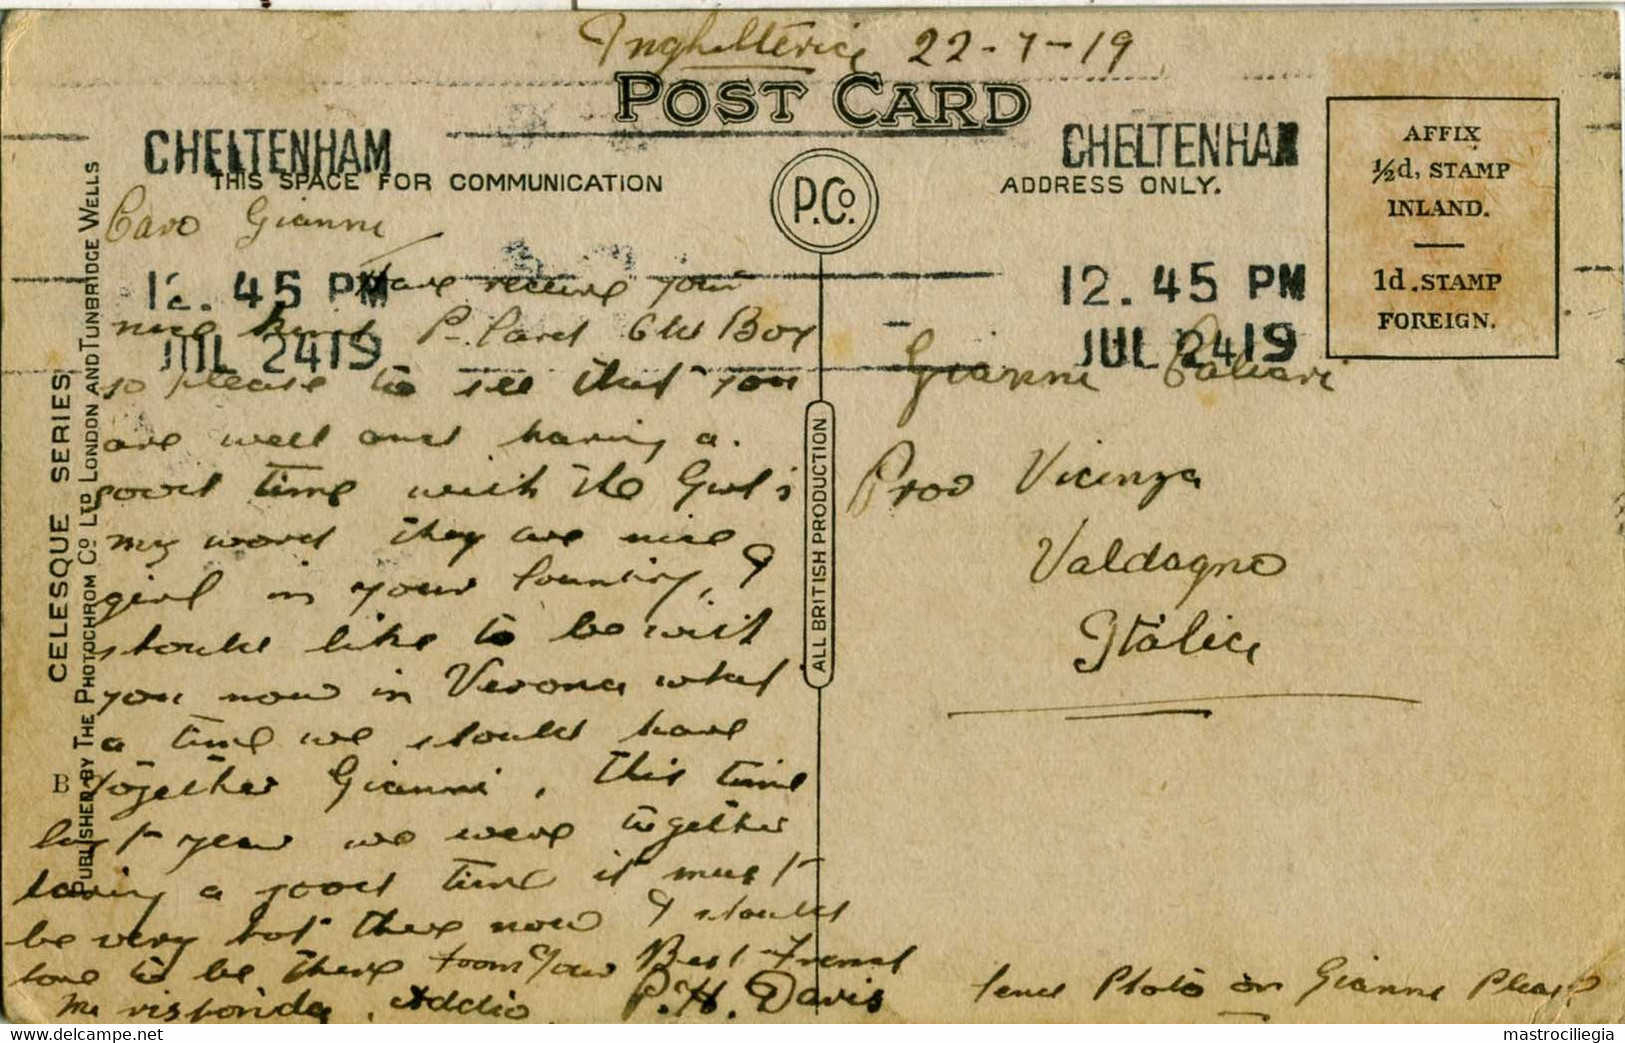 Inghilteria 22-7-19
POST CARD
CHELTENHAM
CHELTENHAM
THIS SPACE FOR COMMUNICATION
ADDRESS ONLY.
P.Co.
AFFIX
½d, STAMP
INLAND.
1d. STAMP
FOREIGN.
12. 45 PM
JUL 24 19
12. 45 PM
JUL 24 19
Caro Gianni
Have receive your
nice kind P. Card Box
so please to see that you
are well and having a.
good time with the Girl's
my word they are nice
girl in your Country, I
should like to be with
you now in Verona what
a time we should have
together Gianni, this time
last year we were together
having a good time it must
be very hot there now I should
love to be there from Your Best Friend
Me risponida, Addio P.H. Davis
Gianni
Prov Vicenza
Valdagno
Itàlia
Photo on Gianni Please
ALL BRITISH PRODUCTION
CELESQUE SERIES
PUBLISHED BY THE PHOTOCHROM CO LTD LONDON AND TUNBRIDGE WELLS
B
delcampe.net
mastrociliegia